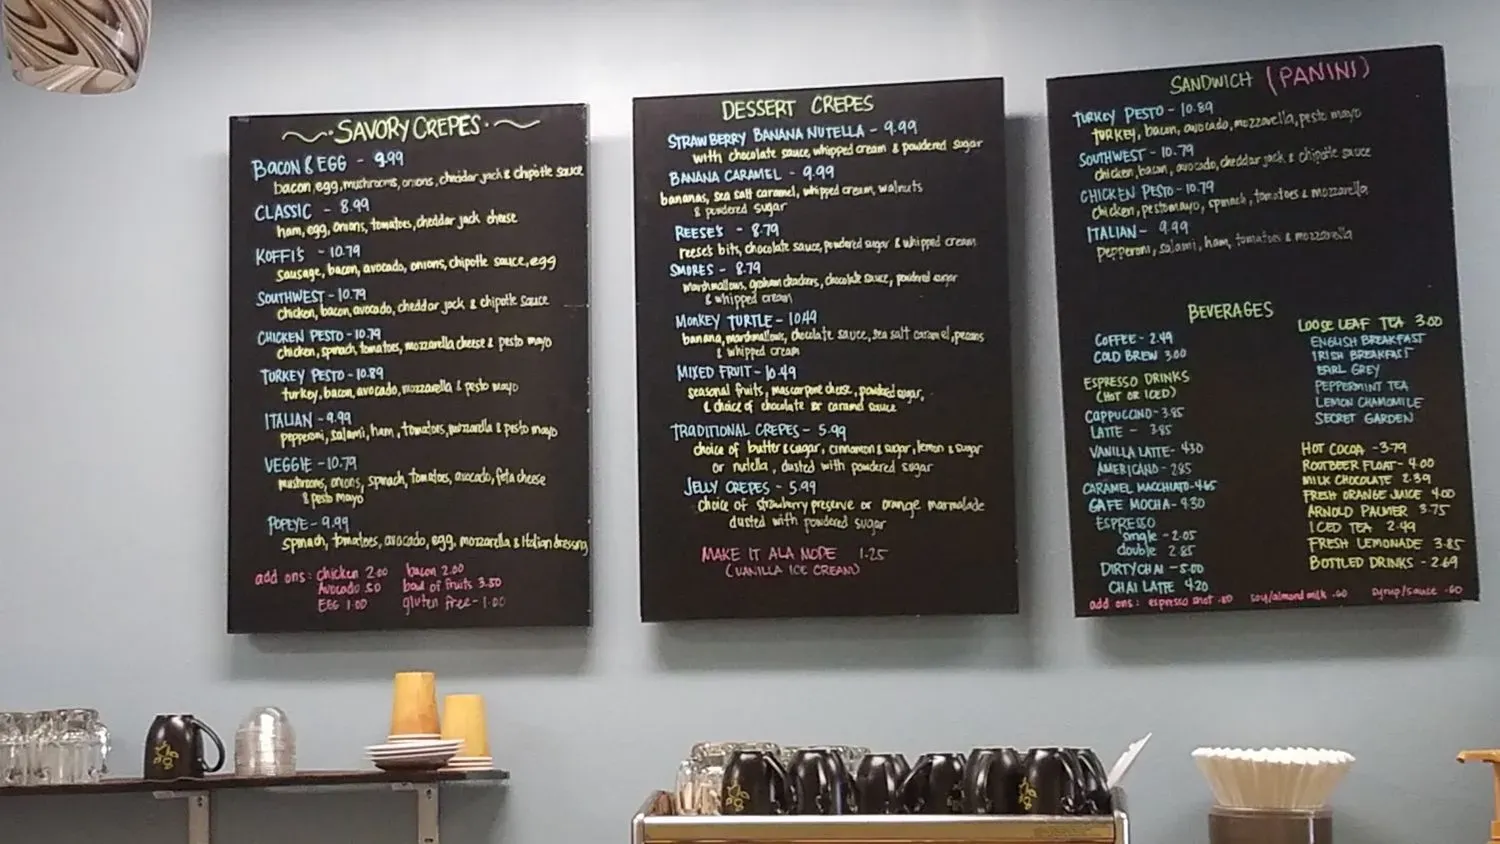 SAVORY CREPES
BACON & EGG - 9.99
bacon, egg, mushrooms, onions, cheddar jack & chipotle sauce
CLASSIC - 8.99
ham, egg, onions, tomatoes, cheddar jack cheese
KOFFI'S - 10.79
sausage, bacon, avocado, onions, chipotle sauce, egg
SOUTHWEST - 10.79
chicken, bacon, avocado, cheddar jack & chipotle sauce
CHICKEN PESTO - 10.79
chicken, spinach, tomatoes, mozzarella cheese & pesto mayo
TURKEY PESTO - 10.89
turkey, bacon, avocado, mozzarella & pesto mayo
ITALIAN - 9.99
pepperoni, salami, ham, tomatoes, mozzarella & pesto mayo
VEGGIE - 10.79
mushrooms, onions, spinach, tomatoes, avocado, feta cheese
& pesto mayo
POPEYE - 9.99
spinach, tomatoes, avocado, egg, mozzarella & Italian dressing
add ons: chicken 2.00 bacon 2.00
Avocado .50 bowl of fruits 3.50
EGG 1.00 gluten free - 1.00
DESSERT CREPES
STRAWBERRY BANANA NUTELLA - 9.99
with chocolate sauce, whipped cream & powdered sugar
BANANA CARAMEL - 9.99
bananas, sea salt caramel, whipped cream, walnuts
& powdered sugar
REESE'S - 8.79
reese's bits, chocolate sauce, powdered sugar & whipped cream
SMORES - 8.79
marshmallows, graham crackers, chocolate sauce, powdered sugar
& whipped cream
MONKEY TURTLE - 10.49
banana, marshmallows, chocolate sauce, sea salt caramel, pecans
& whipped cream
MIXED FRUIT - 10.49
seasonal fruits, mascarpone cheese, powdered sugar,
& choice of chocolate or caramel sauce
TRADITIONAL CREPES - 5.99
choice of butter & sugar, cinnamon & sugar, lemon & sugar
or nutella, dusted with powdered sugar
JELLY CREPES - 5.99
choice of strawberry preserve or orange marmalade
dusted with powdered sugar
MAKE IT ALA MODE 1.25
(VANILLA ICE CREAM)
SANDWICH (PANINI)
TURKEY PESTO - 10.89
turkey, bacon, avocado, mozzarella, pesto mayo
SOUTHWEST - 10.79
chicken, bacon, avocado, cheddar jack & chipotle sauce
CHICKEN PESTO - 10.79
chicken, pesto mayo, spinach, tomatoes & mozzarella
ITALIAN - 9.99
pepperoni, salami, ham, tomatoes & mozzarella
BEVERAGES
COFFEE - 2.49
COLD BREW 3.00
ESPRESSO DRINKS
(HOT OR ICED)
CAPPUCCINO - 3.85
LATTE - 3.85
VANILLA LATTE - 4.30
AMERICANO - 2.85
CARAMEL MACCHIATO - 4.65
CAFE MOCHA - 4.30
ESPRESSO
single - 2.05
double 2.85
DIRTY CHAI - 5.00
CHAI LATTE 4.20
LOOSE LEAF TEA 3.00
ENGLISH BREAKFAST
IRISH BREAKFAST
EARL GREY
PEPPERMINT TEA
LEMON CHAMOMILE
SECRET GARDEN
HOT COCOA - 3.79
ROOTBEER FLOAT - 4.00
MILK CHOCOLATE 2.39
FRESH ORANGE JUICE 4.00
ARNOLD PALMER 3.75
ICED TEA 2.49
FRESH LEMONADE 3.85
BOTTLED DRINKS - 2.69
add ons: espresso shot .80 soy/almond milk .60 syrup/sauce .60